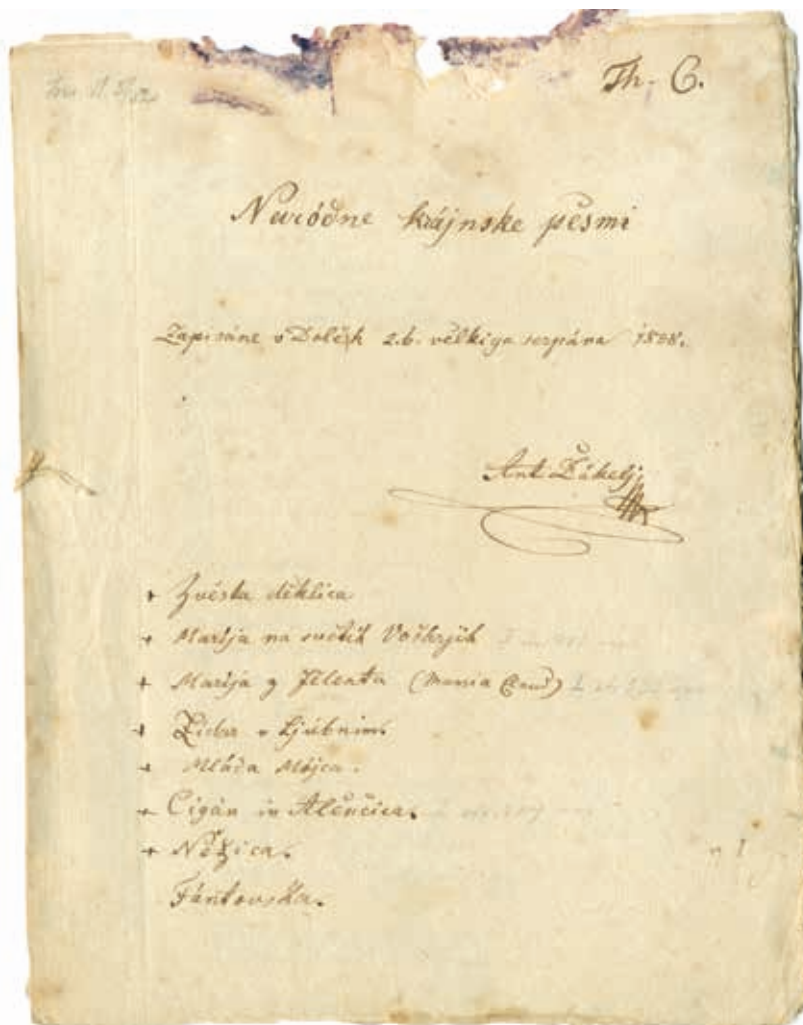 Th. C.
Naródne krájnske pésmi
Zapisáne v Doléh 26. vélkiga serpána 1838.
Ant. Žákelj
+ Zvésta déklica
+ Marija na svétih Všarjih
+ Marija z Jelenta (Maria Elend)
+ Židar v Ljúbnim.
+ Mláda Mójca.
+ Cigán in Alénčica.
+ Nóžica.
Fántovska.